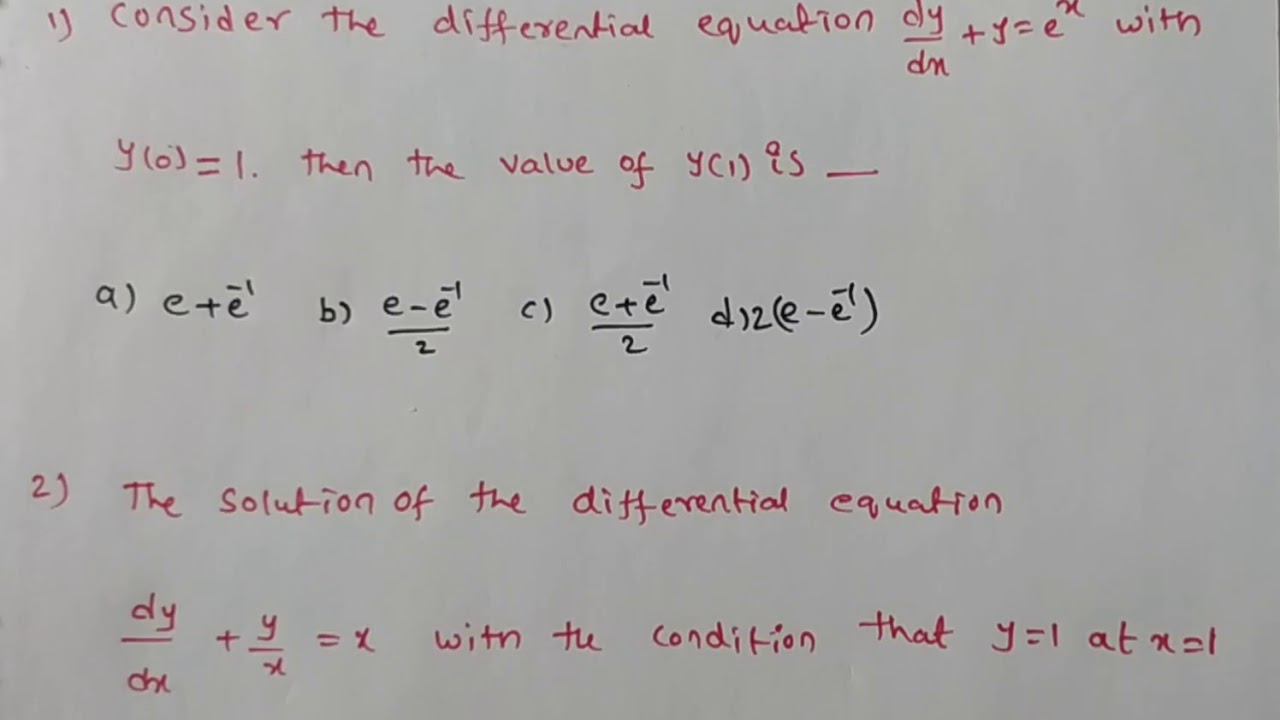 1) Consider the differential equation dy/dx + y = e^x with
y(0) = 1. then the value of y(1) is __
a) e + e^-1 b) (e - e^-1)/2 c) (e + e^-1)/2 d) 2(e - e^-1)
2) The solution of the differential equation
dy/dx + y/x = x with the condition that y=1 at x=1